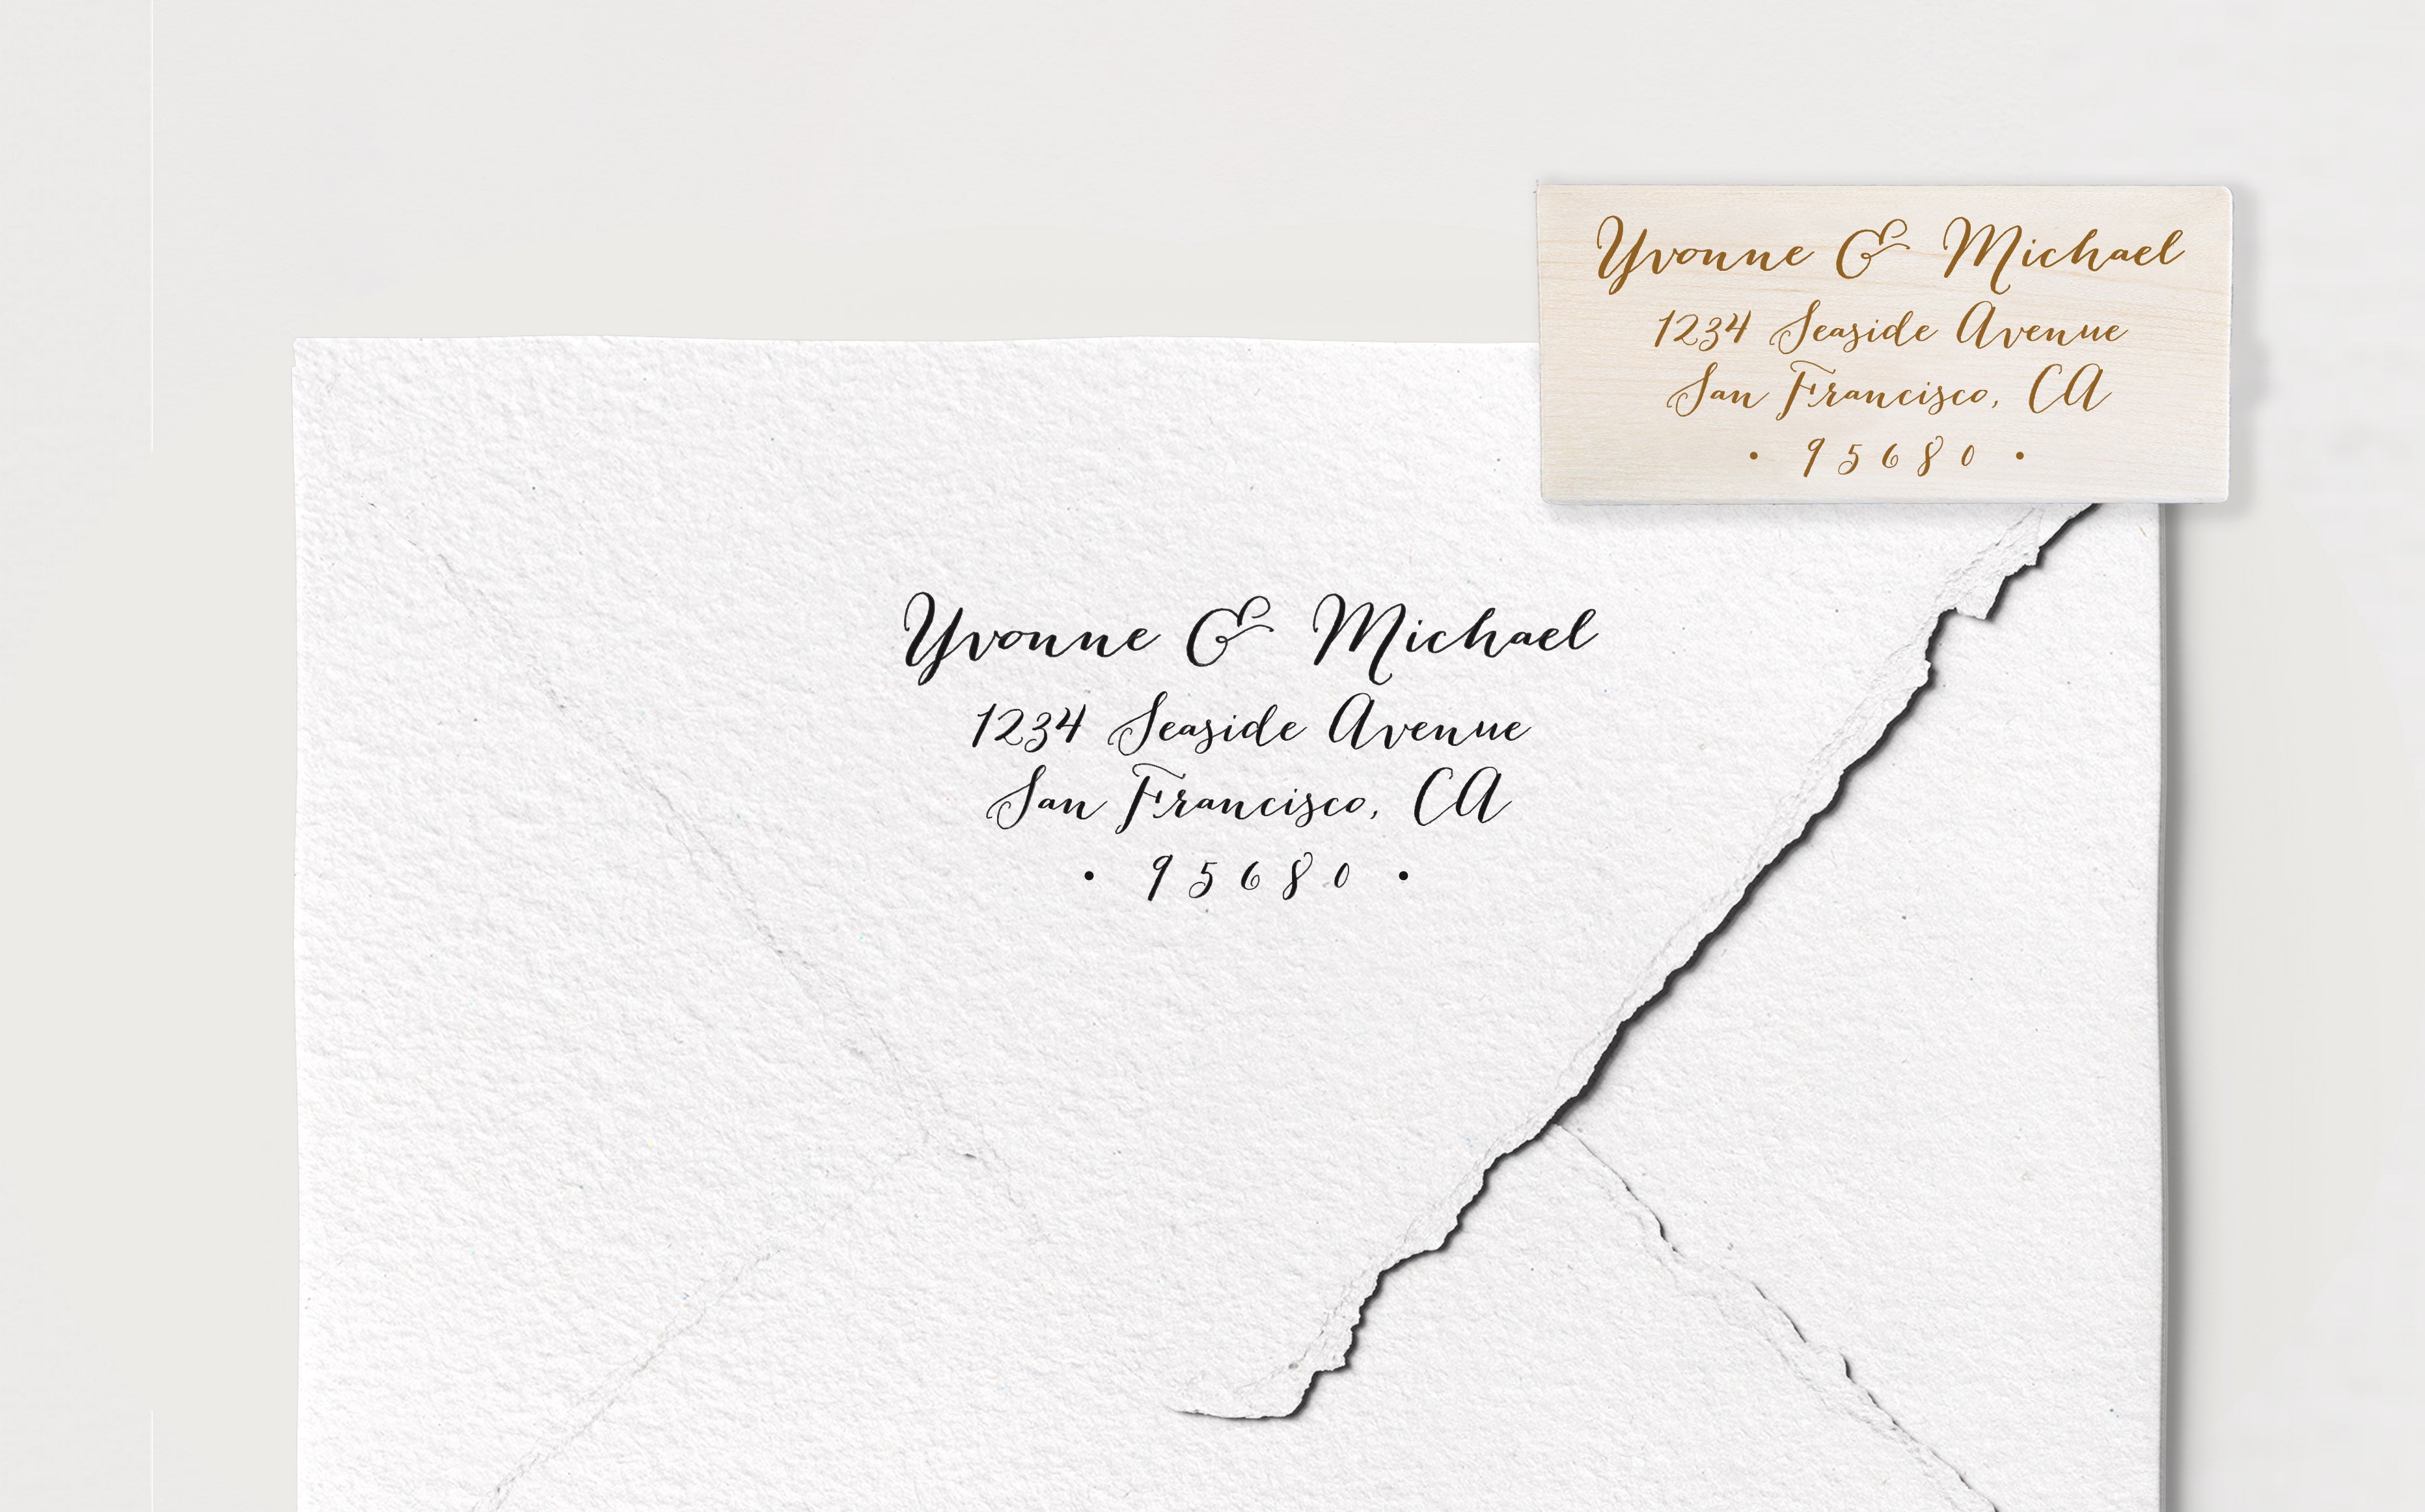 Yvonne & Michael
1234 Seaside Avenue
San Francisco, CA
• 95680 •
Yvonne & Michael
1234 Seaside Avenue
San Francisco, CA
• 95680 •